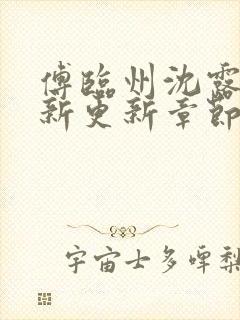 傅临州沈露
新更新章節
宇宙士多啤梨